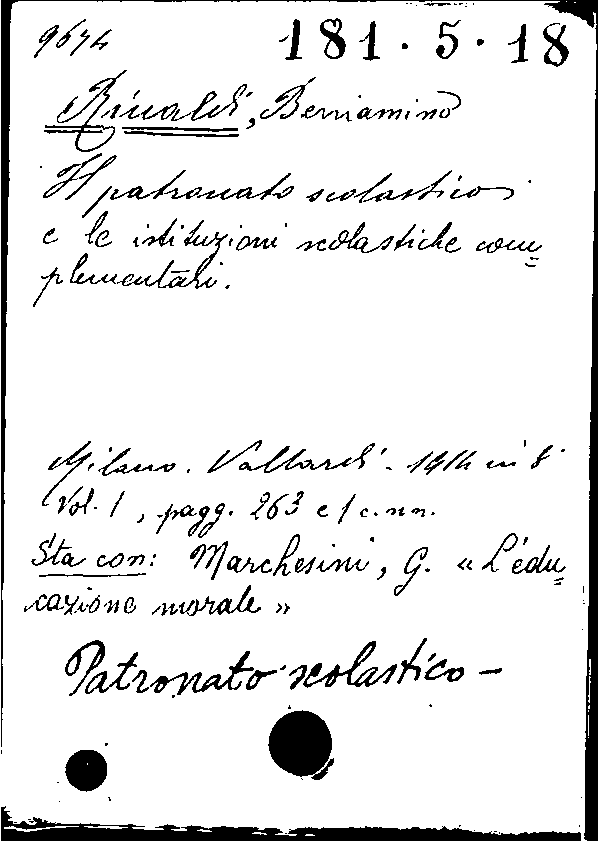 9674
181.5.18
Rinaldi, Beniamino
Il patronato scolastico
e le istituzioni scolastiche com=
plementari.
Milano. Vallardi - 1914 in 8°
Vol. 1, pagg. 263 e 1 c.nn.
Sta con: Marchesini, G. « L'edu=
cazione morale »
Patronato scolastico –